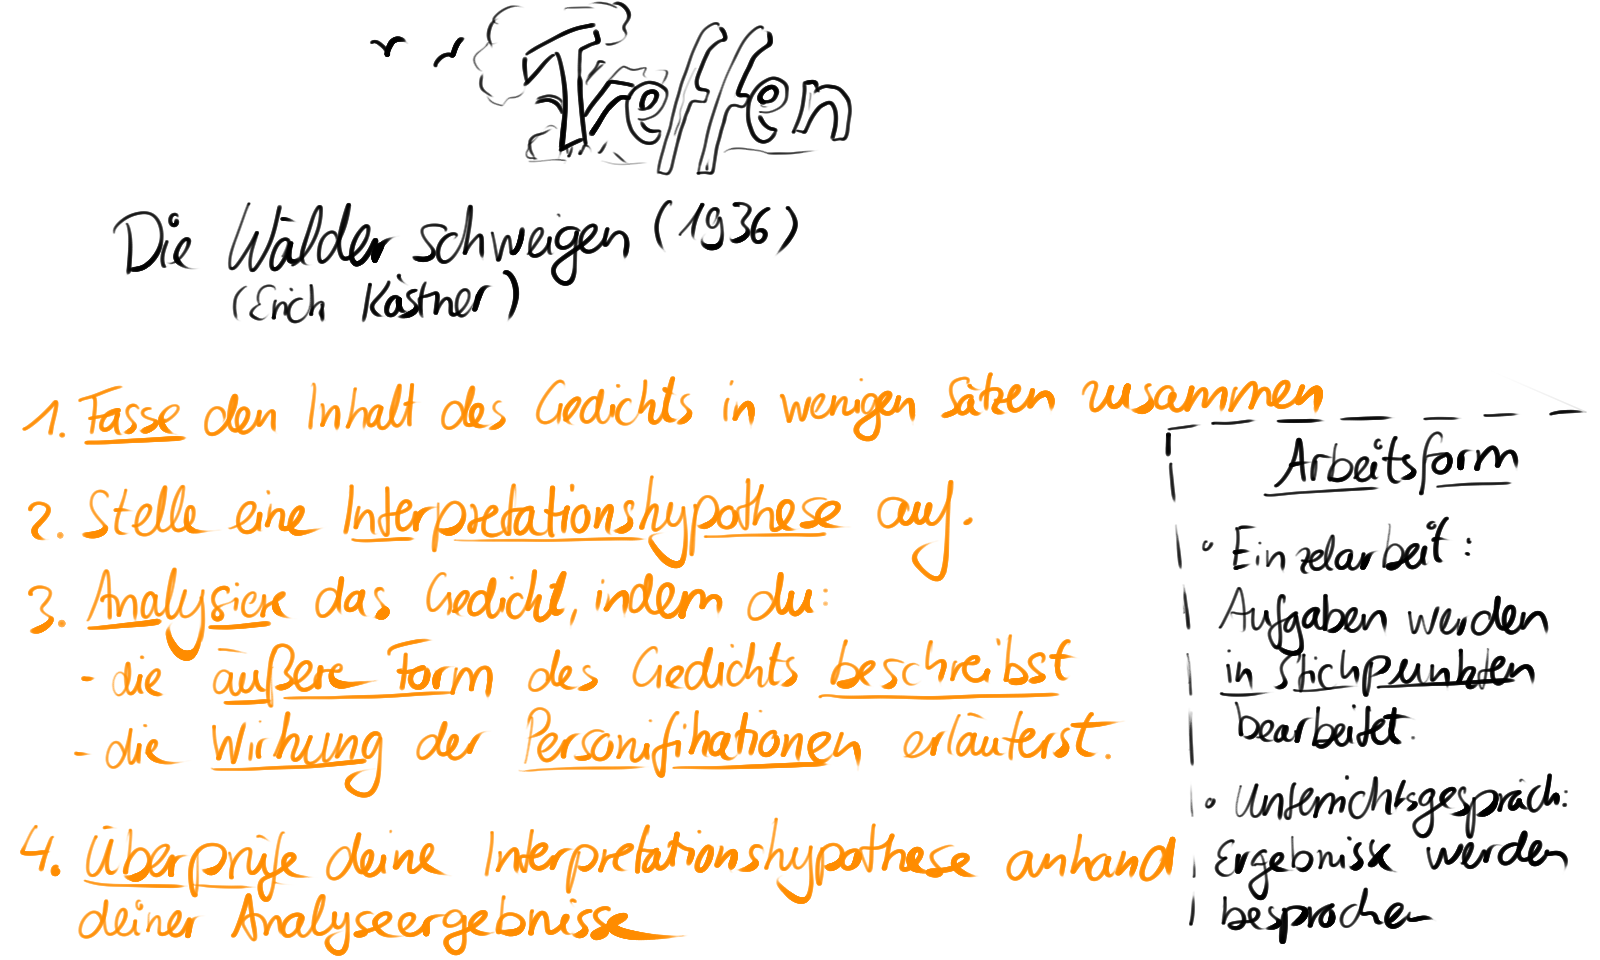 Treffen
Die Wälder schweigen (1936)
(Erich Kästner)
1. Fasse den Inhalt des Gedichts in wenigen Sätzen zusammen
2. Stelle eine Interpretationshypothese auf.
3. Analysiere das Gedicht, indem du:
- die äußere Form des Gedichts beschreibst
- die Wirkung der Personifikationen erläuterst.
4. Überprüfe deine Interpretationshypothese anhand
deiner Analyseergebnisse
Arbeitsform
• Einzelarbeit:
Aufgaben werden
in Stichpunkten
bearbeitet.
• Unterrichtsgespräch:
Ergebnisse werden
besprochen